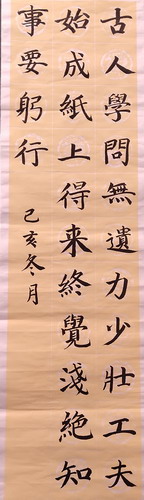 古人學問無遺力少壯工夫
始成紙上得来終覺淺絶知
事要躬行
己亥冬月